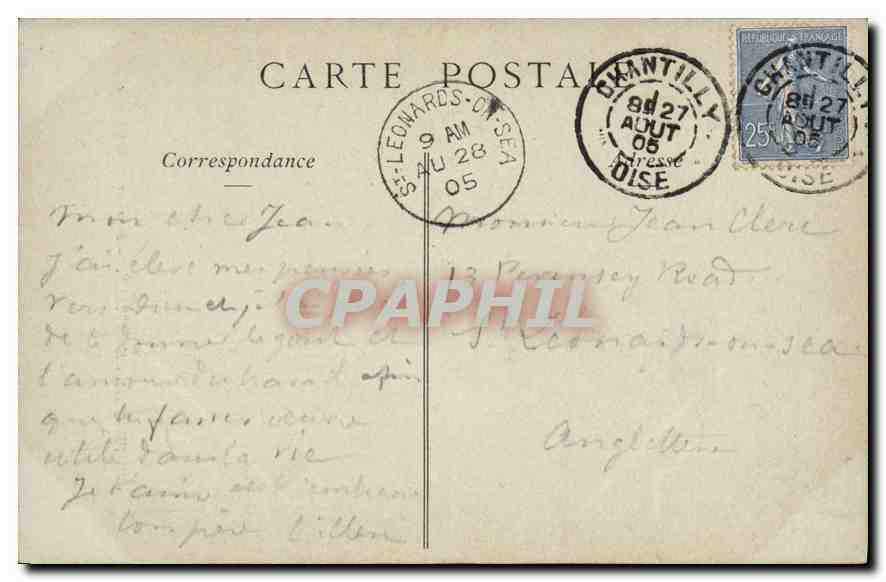 RÉPUBLIQUE FRANÇAISE
25
CARTE POSTALE
CHANTILLY
8E 27
AOUT
05
OISE
CHANTILLY
8E 27
AOUT
05
OISE
ST LEONARDS-ON-SEA
9 AM
AU 28
05
Correspondance
Adresse
Mon cher Jean
j'ai élevé mes pensées
vers Dieu et
de te donner le goût et
l'amour du travail afin
que tu fasses œuvre
utile dans la vie
Je t'aime et t'embrasse
ton père
Monsieur Jean Clerc
13 Pevensey Road
St Léonards-on-sea
Angleterre
CPAPHIL